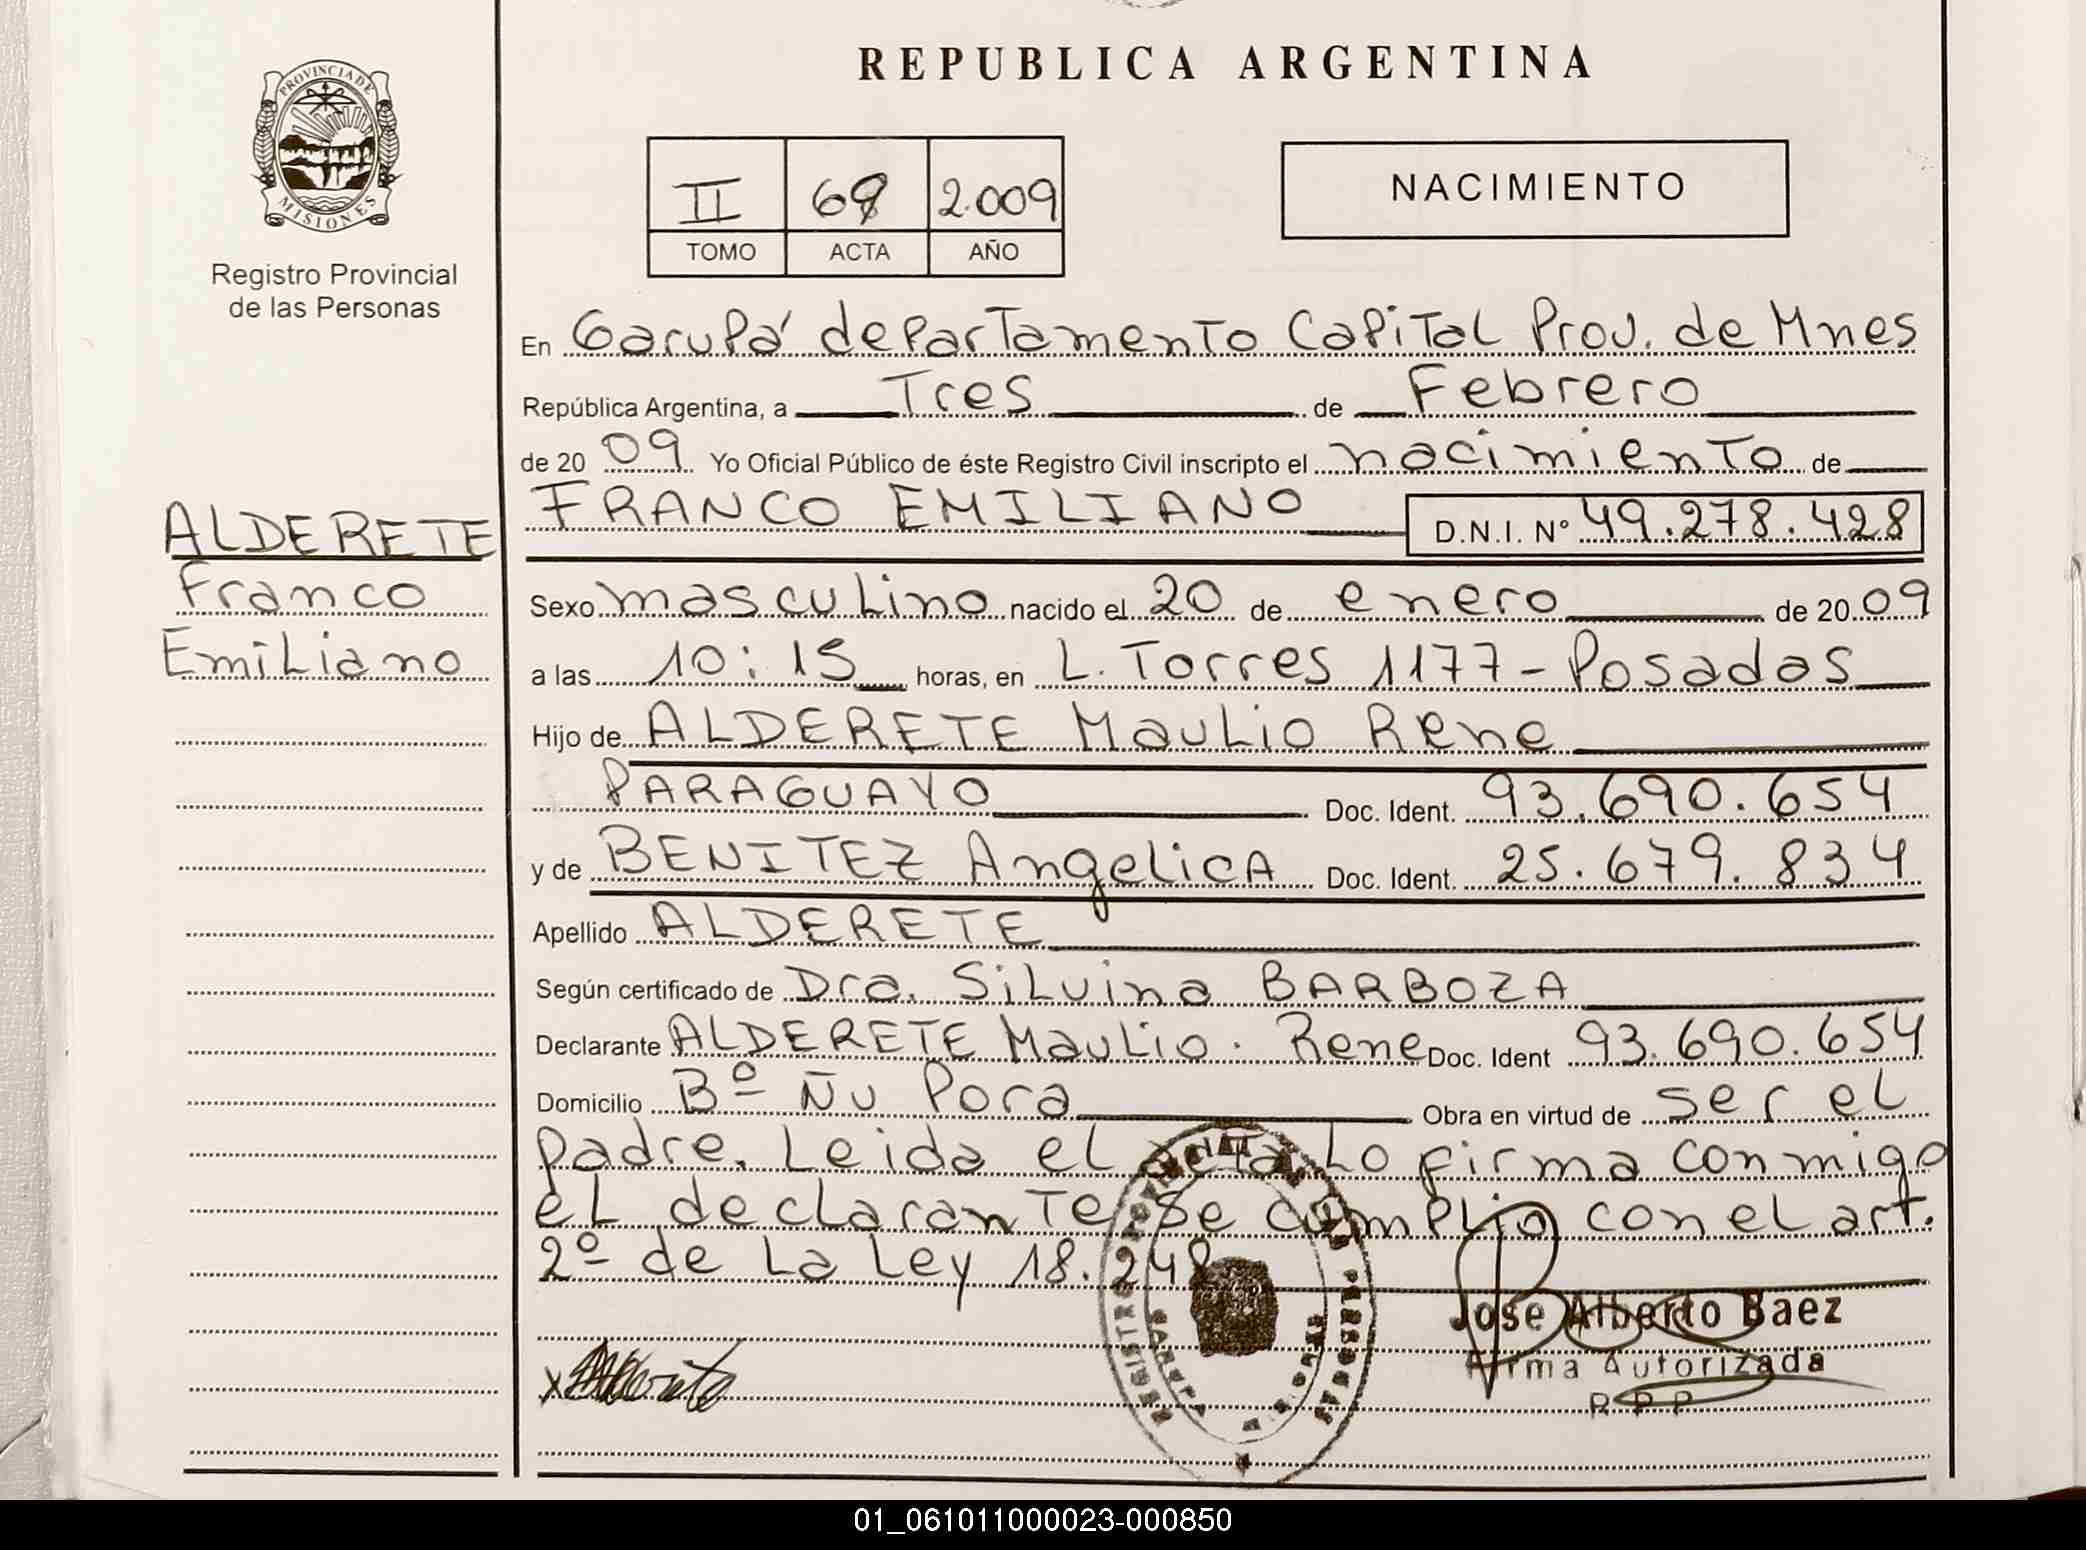 REPUBLICA ARGENTINA
PROVINCIA DE
MISIONES
Registro Provincial
de las Personas
II 2.009
TOMO ACTA AÑO
NACIMIENTO
En Garupá departamento Capital Prov. de Mnes
República Argentina, a Tres de Febrero
de 20 09 Yo Oficial Público de éste Registro Civil inscripto el nacimiento de
FRANCO EMILIANO D.N.I. Nº 49.278.428
ALDERETE
Franco
Emiliano
Sexo masculino nacido el 20 de enero de 20 09
a las 10:15 horas, en L. Torres 1177 - Posadas
Hijo de ALDERETE Maulio Rene
PARAGUAYO Doc. Ident. 93.690.654
y de BENITEZ Angelica Doc. Ident. 25.679.834
Apellido ALDERETE
Según certificado de Dra. Silvina BARBOZA
Declarante ALDERETE Maulio. Rene Doc. Ident 93.690.654
Domicilio Bº Ñu Pora Obra en virtud de ser el
padre. Leida el acta lo firma conmigo
el declarante se cumplio con el art.
2º de la Ley 18.248
Jose Alberto Baez
Firma Autorizada
R P P
REGISTRO PROVINCIAL DE LAS PERSONAS
01_061011000023-000850